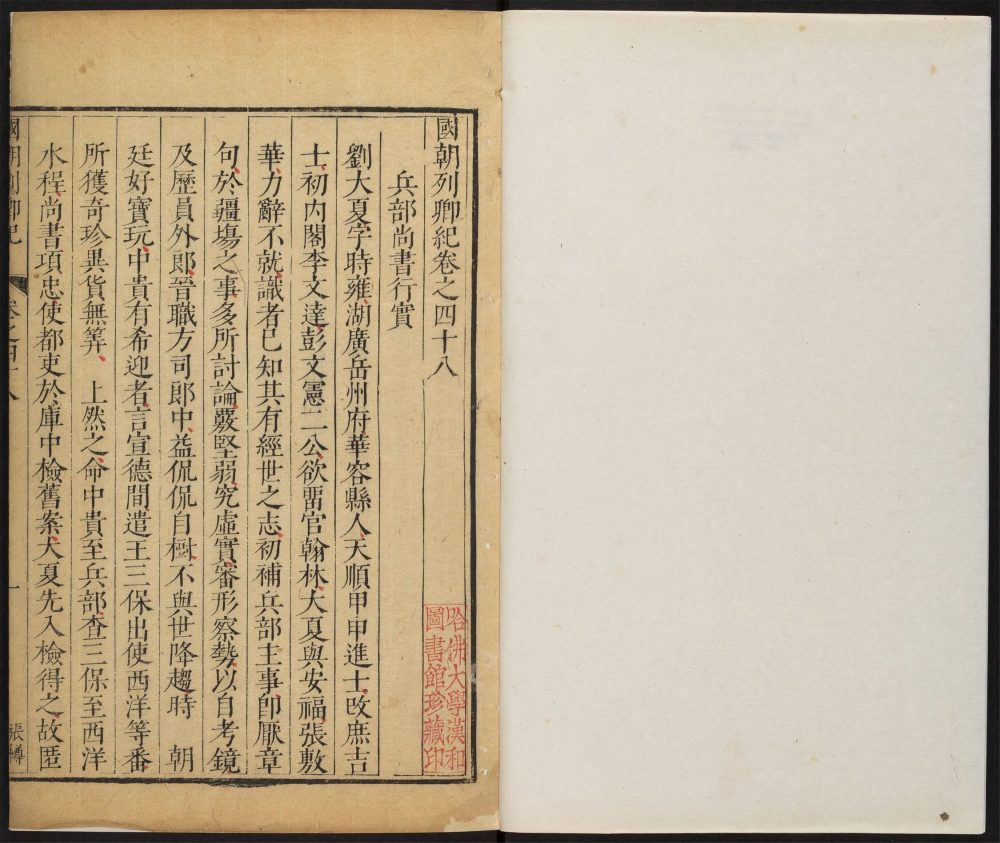 國朝列卿紀卷之四十八
兵部尚書行實
劉大夏字時雍湖廣岳州府華容縣人天順甲申進士改庶吉
士初內閣李文達彭文憲二公欲畱官翰林大夏與安福張敷
華力辭不就識者已知其有經世之志初補兵部主事卽厭章
句於疆埸之事多所討論覈堅弱究虛實審形察勢以自考鏡
及歷員外郞晉職方司郞中益侃侃自樹不與世降趨時 朝
廷好寶玩中貴有希迎者言宣德間遣王三保出使西洋等番
所獲奇珍異貨無筭 上然之命中貴至兵部查三保至西洋
水程尚書項忠使都吏於庫中檢舊案大夏先入檢得之故匿
國朝列卿紀 卷之四十八 一 張樽
哈佛大學漢和
圖書館珍藏印